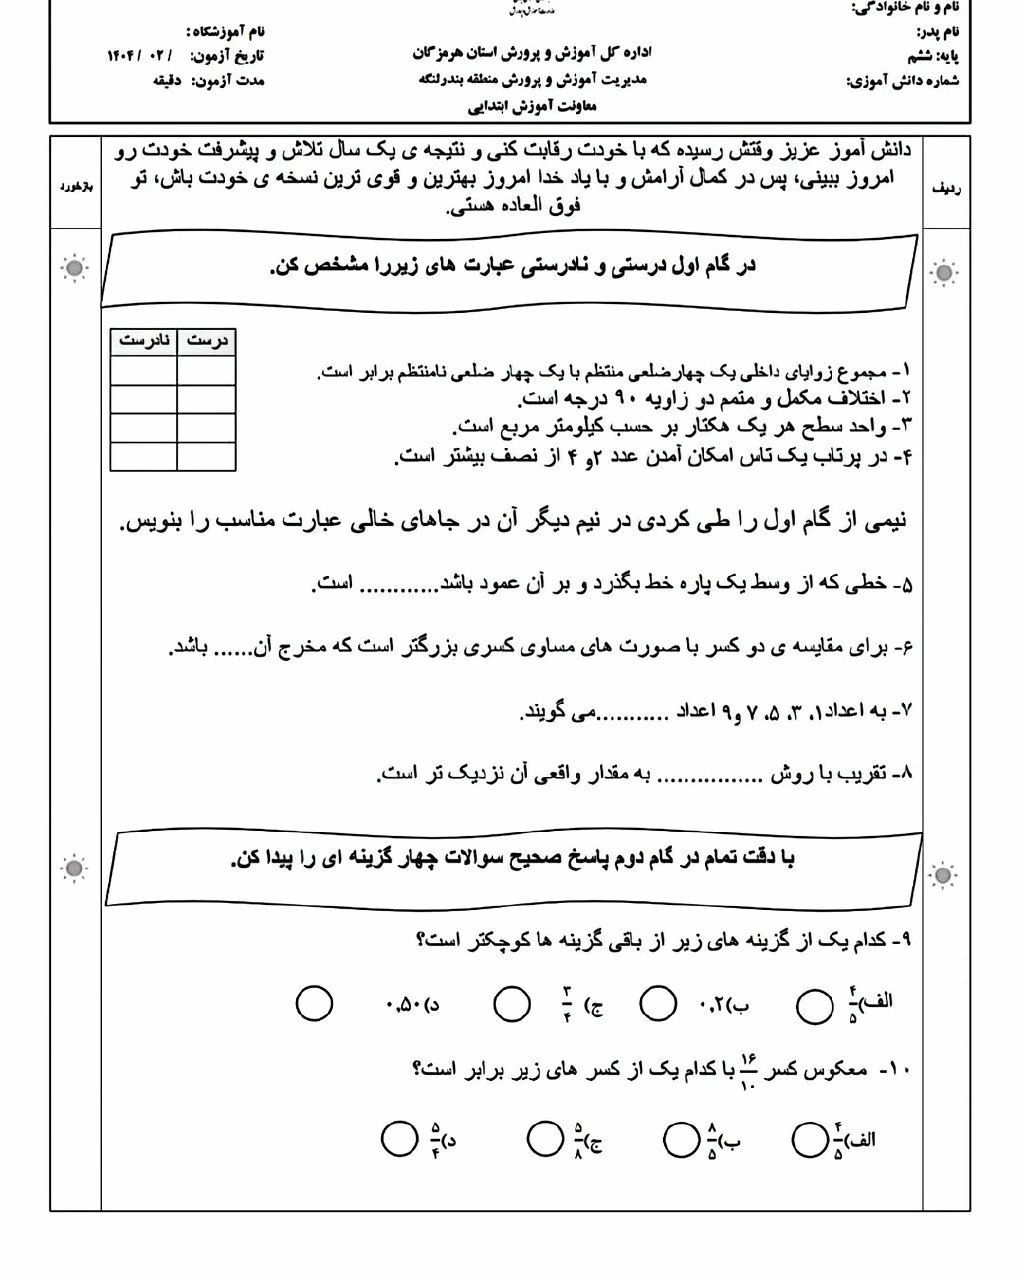 نام و نام خانوادگی:
نام پدر:
پایه: ششم
شماره دانش آموزی:
اداره کل آموزش و پرورش استان هرمزگان
مدیریت آموزش و پرورش منطقه بندرلنگه
معاونت آموزش ابتدایی
نام آموزشگاه:
تاریخ آزمون: / ۰۲ / ۱۴۰۴
مدت آزمون: دقیقه
ردیف
دانش آموز عزیز وقتش رسیده که با خودت رقابت کنی و نتیجه ی یک سال تلاش و پیشرفت خودت رو
امروز ببینی، پس در کمال آرامش و با یاد خدا امروز بهترین و قوی ترین نسخه ی خودت باش، تو
فوق العاده هستی.
بازخورد
در گام اول درستی و نادرستی عبارت های زیررا مشخص کن.
درست نادرست
۱- مجموع زوایای داخلی یک چهارضلعی منتظم با یک چهار ضلعی نامنتظم برابر است.
۲- اختلاف مکمل و متمم دو زاویه ۹۰ درجه است.
۳- واحد سطح هر یک هکتار بر حسب کیلومتر مربع است.
۴- در پرتاب یک تاس امکان آمدن عدد ۲و ۴ از نصف بیشتر است.
نیمی از گام اول را طی کردی در نیم دیگر آن در جاهای خالی عبارت مناسب را بنویس.
۵- خطی که از وسط یک پاره خط بگذرد و بر آن عمود باشد............ است.
۶- برای مقایسه ی دو کسر با صورت های مساوی کسری بزرگتر است که مخرج آن...... باشد.
۷- به اعداد۱، ۳، ۵، ۷ و۹ اعداد ...........می گویند.
۸- تقریب با روش ................ به مقدار واقعی آن نزدیک تر است.
با دقت تمام در گام دوم پاسخ صحیح سوالات چهار گزینه ای را پیدا کن.
۹- کدام یک از گزینه های زیر از باقی گزینه ها کوچکتر است؟
الف)۴/۵ ب)۰,۲ ج) ۳/۴ د)۰,۵۰
۱۰- معکوس کسر ۱۶/۱۰ با کدام یک از کسر های زیر برابر است؟
الف)۴/۵ ب)۸/۵ ج)۵/۸ د)۵/۴